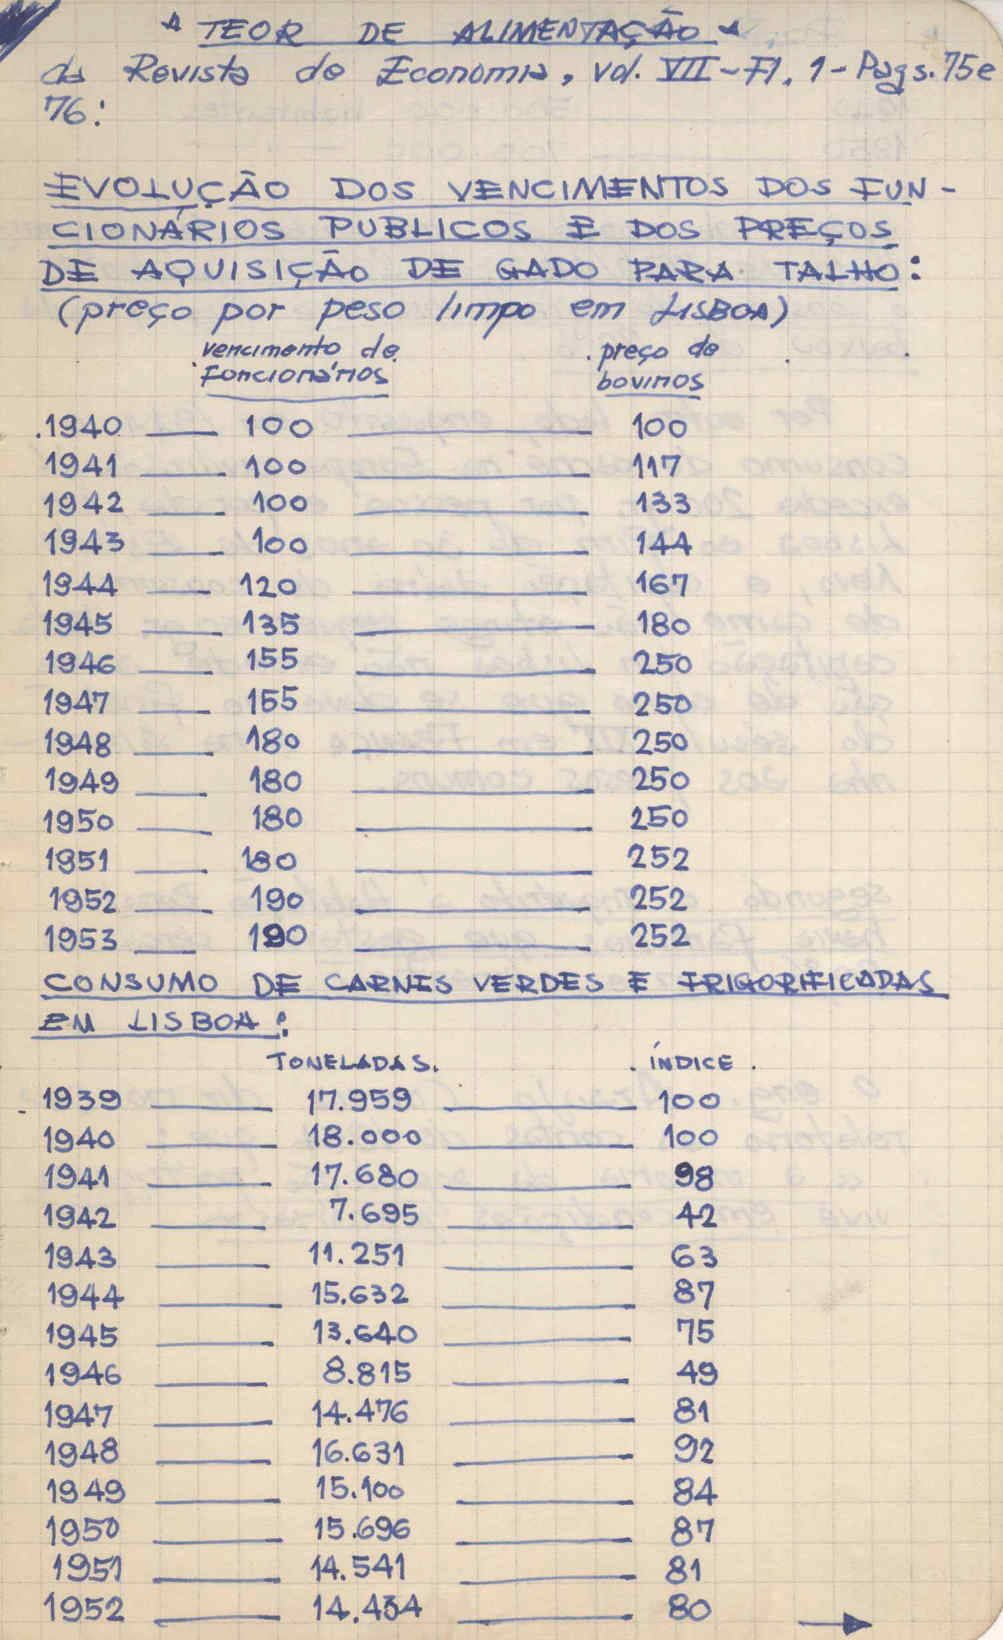 TEOR DE ALIMENTAÇÃO
da Revista de Economia, vol. VII-F1. 1- Pags. 75 e
76:
EVOLUÇÃO DOS VENCIMENTOS DOS FUN-
CIONÁRIOS PUBLICOS E DOS PREÇOS
DE AQUISIÇÃO DE GADO PARA TALHO:
(preço por peso limpo em LISBOA)
vencimento de preço de
Foncionários bovinos
1940 100 100
1941 100 117
1942 100 133
1943 100 144
1944 120 167
1945 135 180
1946 155 250
1947 155 250
1948 180 250
1949 180 250
1950 180 250
1951 180 252
1952 190 252
1953 190 252
CONSUMO DE CARNES VERDES E FRIGORIFICADAS
EM LISBOA:
TONELADAS. ÍNDICE.
1939 17.959 100
1940 18.000 100
1941 17.680 98
1942 7.695 42
1943 11.251 63
1944 15.632 87
1945 13.640 75
1946 8.815 49
1947 14.476 81
1948 16.631 92
1949 15.100 84
1950 15.696 87
1951 14.541 81
1952 14.434 80